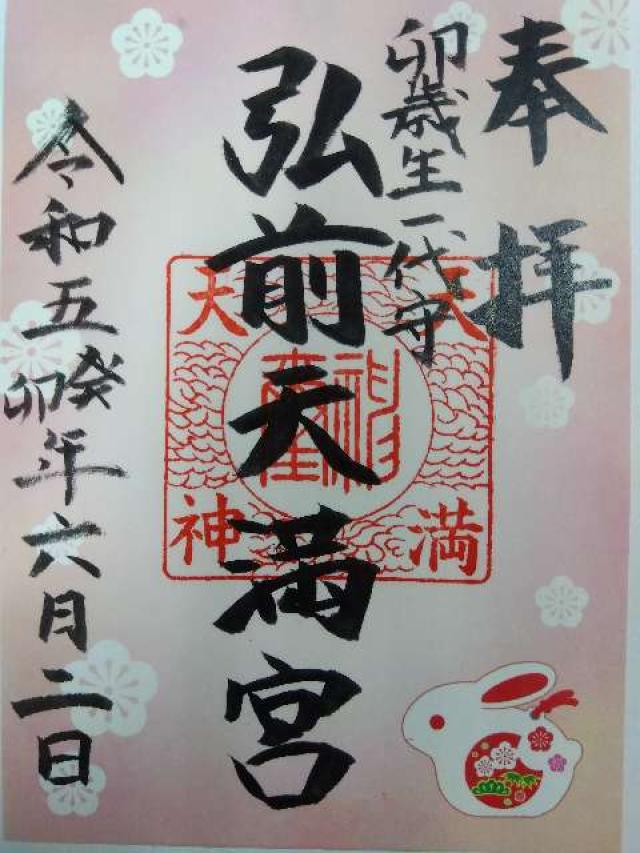 奉拝
卯歳生一代守
弘前天満宮
令和五癸卯年六月二日
天満
天神